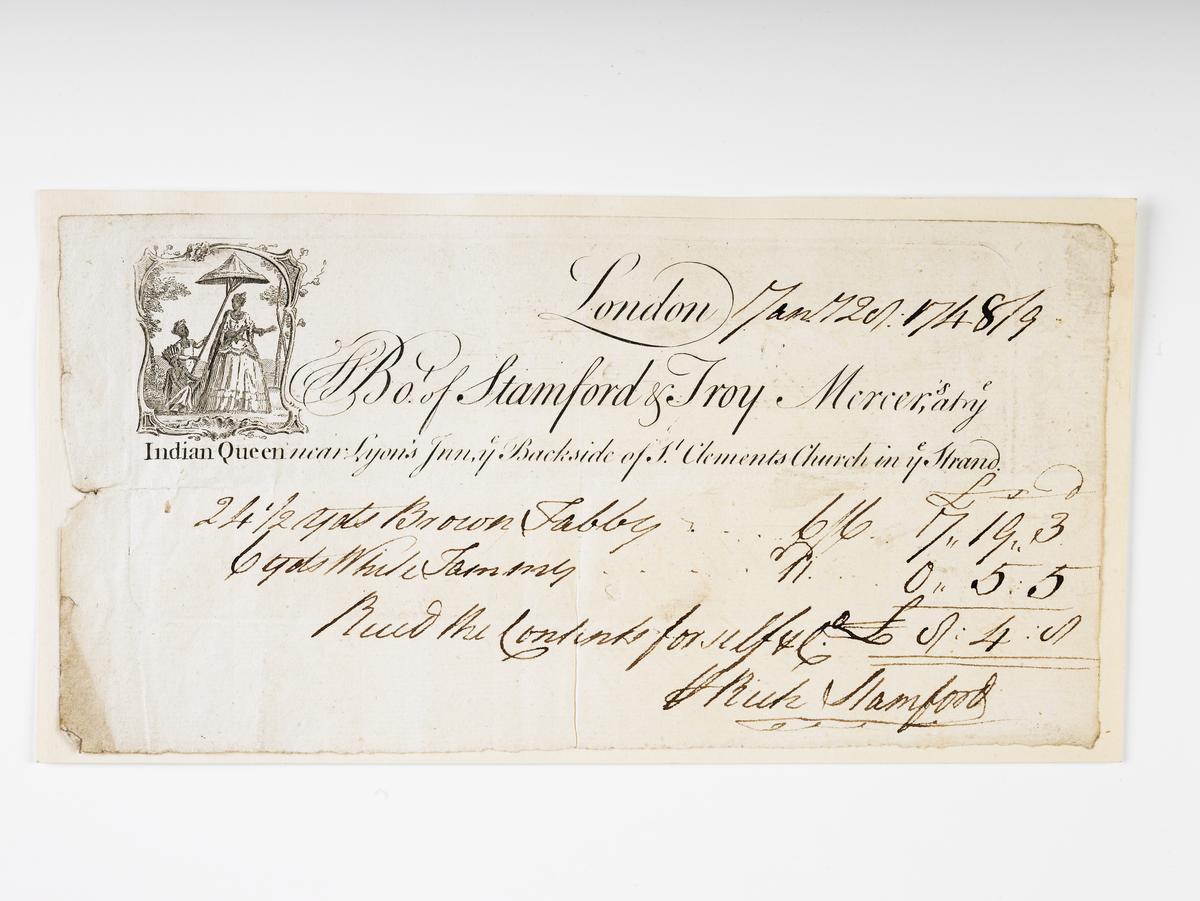 London Jan.ry 28: 1748/9
Bo.t of Stamford & Troy Mercer's, at y.e
Indian Queen near Lyon's Inn, y.e Backside of S.t Clements Church in y.e Strand.
£ s d
24 1/2 yds Brown Tabby 6/6 7,, 19,, 3
6 yds White Tammy 0,, 5: 5
Rec.d the Contents for self & C.o £ 8: 4: 8
Rich Stamford